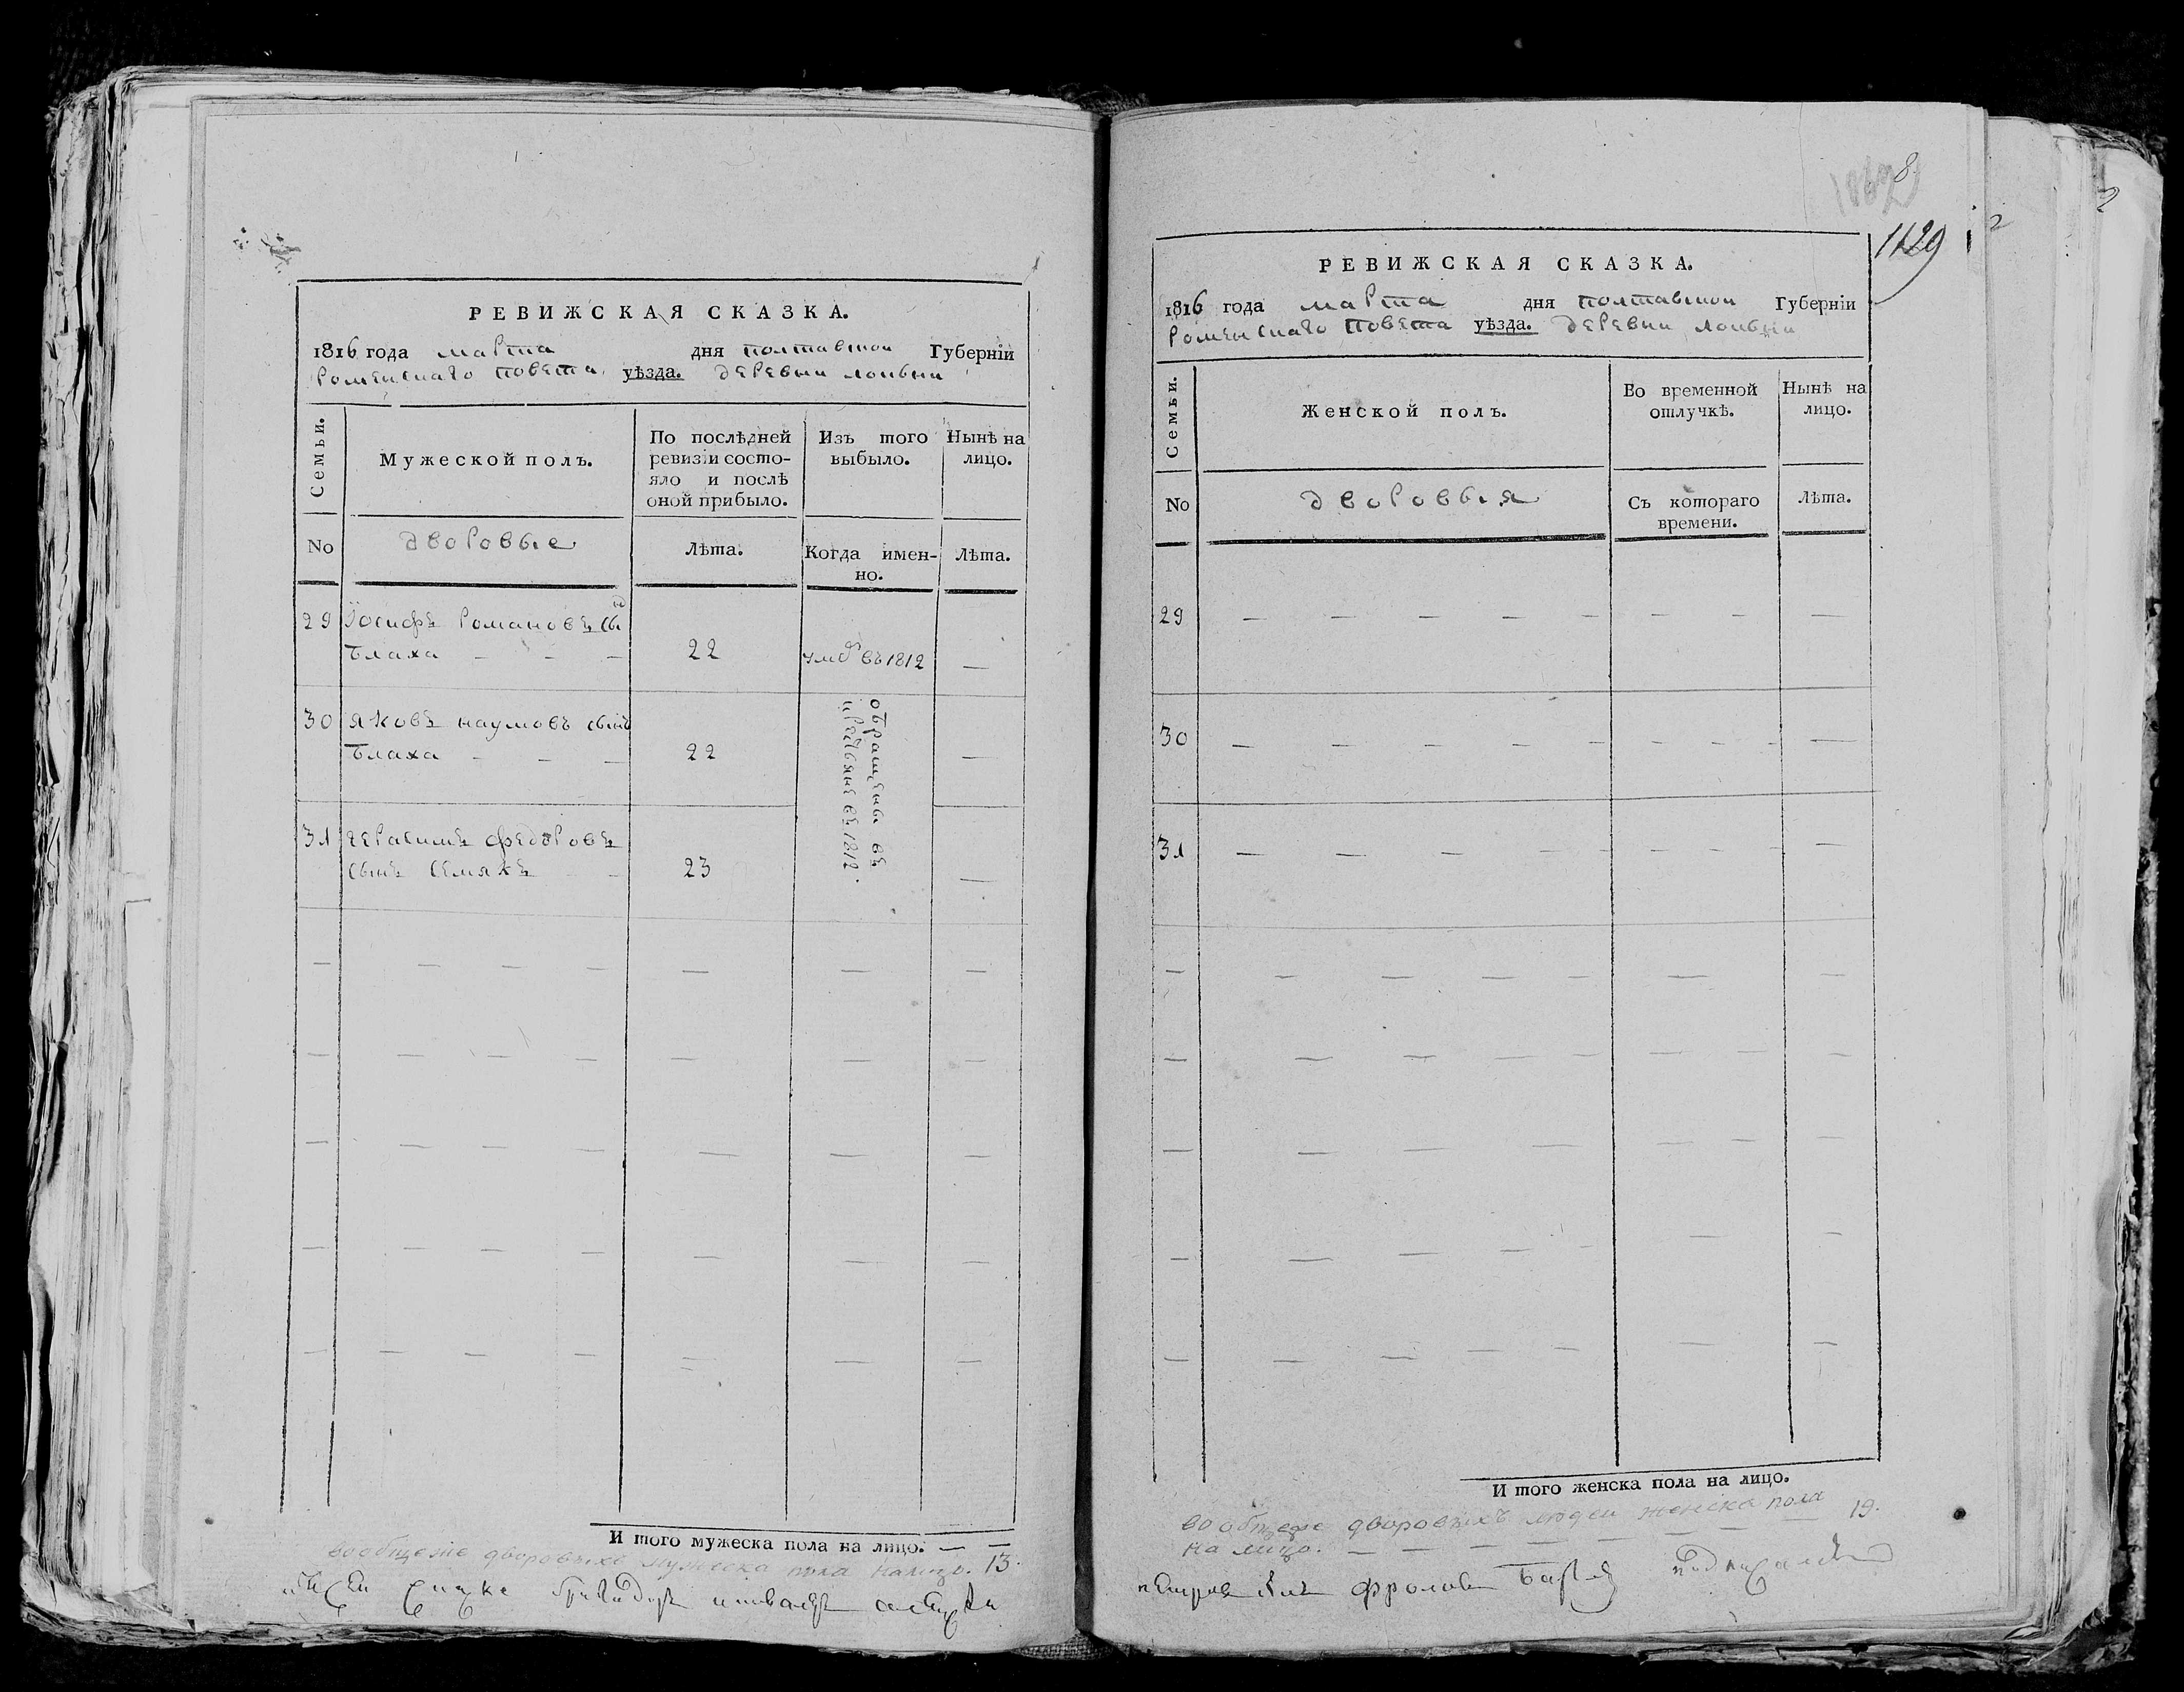 РЕВИЖСКАЯ СКАЗКА.
1816 года марта дня полтавской Губерніи
Роменскаго повета уѣзда. деревни лоивни
Семьи.
Мужеской полъ.
По послѣдней
ревизіи состо-
яло и послѣ
оной прибыло.
Изъ того
выбыло.
Нынѣ на
лицо.
No
дворовые
Лѣта.
Когда имен-
но.
Лѣта.
29 Іосифъ Романовъ сынъ
Блаха — — — 22 умре въ 1812 —
30 яковъ наумовъ сынъ
Блаха — — — 22 —
обращены въ
крестьяне въ 1812.
31 герасимъ федоровъ
сынъ Семякъ — 23 —
И того мужеска пола на лицо. — —
вообщеже дворовыхъ мужеска пола налицо. 13.
РЕВИЖСКАЯ СКАЗКА.
1129
1816 года марта дня полтавской Губерніи
Роменскаго повета уѣзда. деревни лоивни
Семьи.
Женской полъ.
Во временной
отлучкѣ.
Нынѣ на
лицо.
No
дворовыя
Съ котораго
времени.
Лѣта.
29 — — — — — — — —
30 — — — — — — — — —
31 — — — — — — — — —
И того женска пола на лицо.
вообщеже дворовыхъ людей женска пола 19.
на лицо. — — — — — — —
фролов подписался